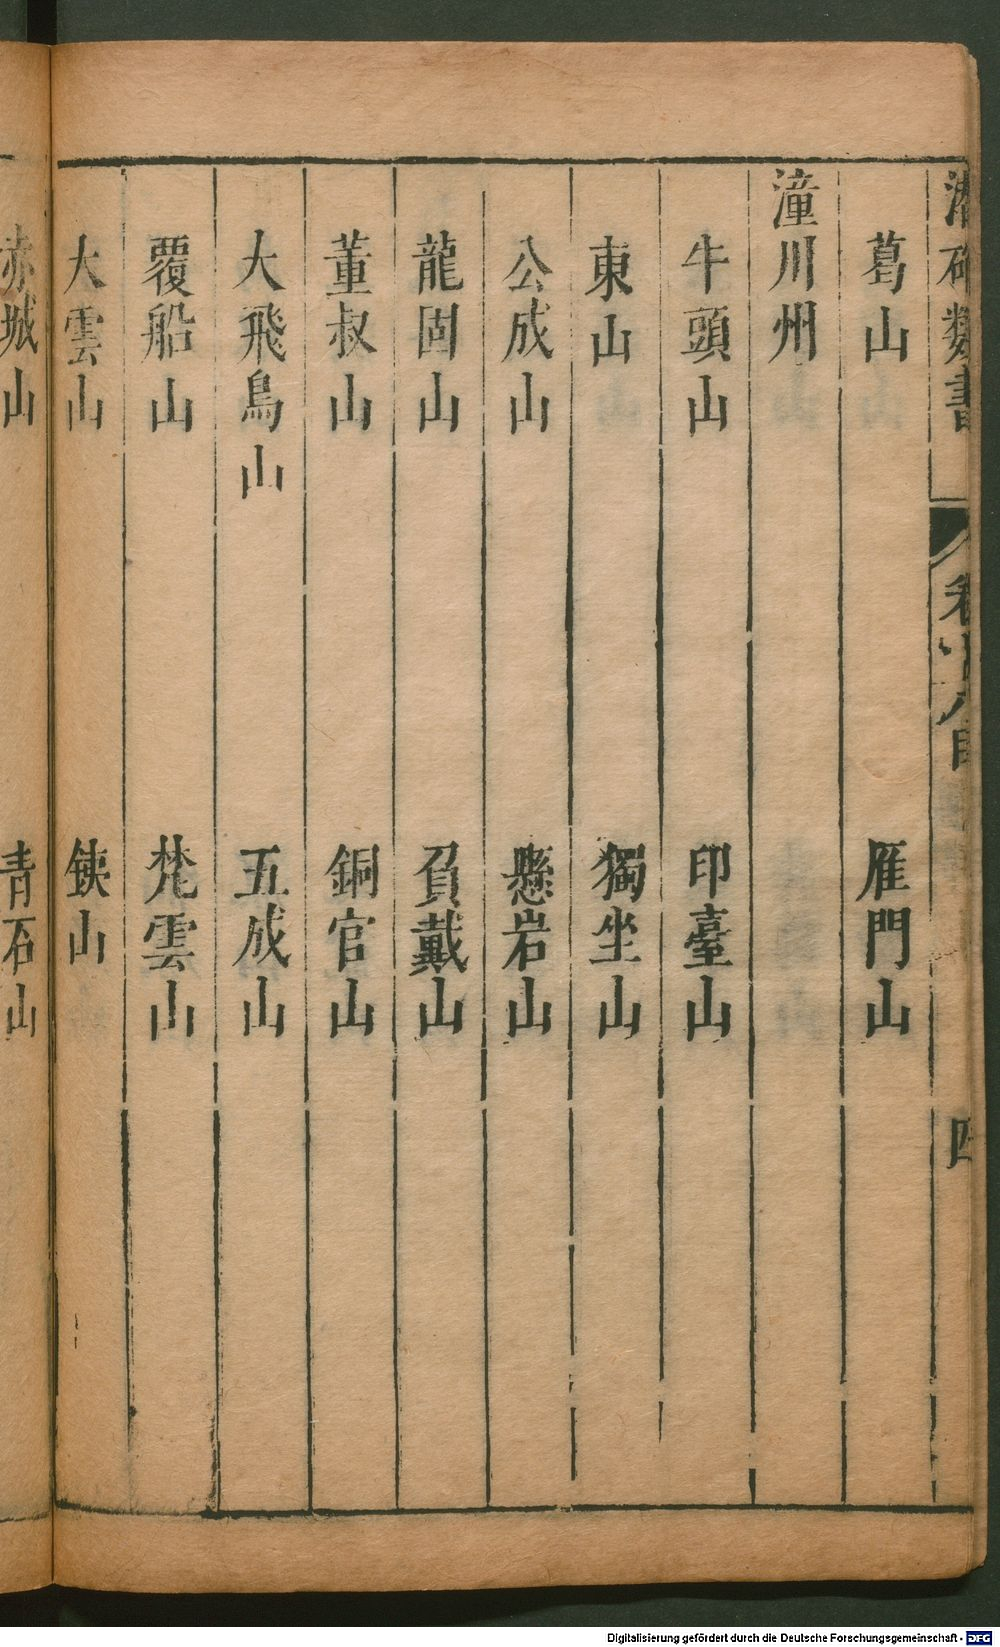 潛確類書 卷之十八目 四
葛山 雁門山
潼川州
牛頭山 印臺山
東山 獨坐山
公成山 懸岩山
龍固山 負戴山
董叔山 銅官山
大飛鳥山 五成山
覆船山 梵雲山
大雲山 鋏山
赤城山 青石山
Digitalisierung gefördert durch die Deutsche Forschungsgemeinschaft - DFG